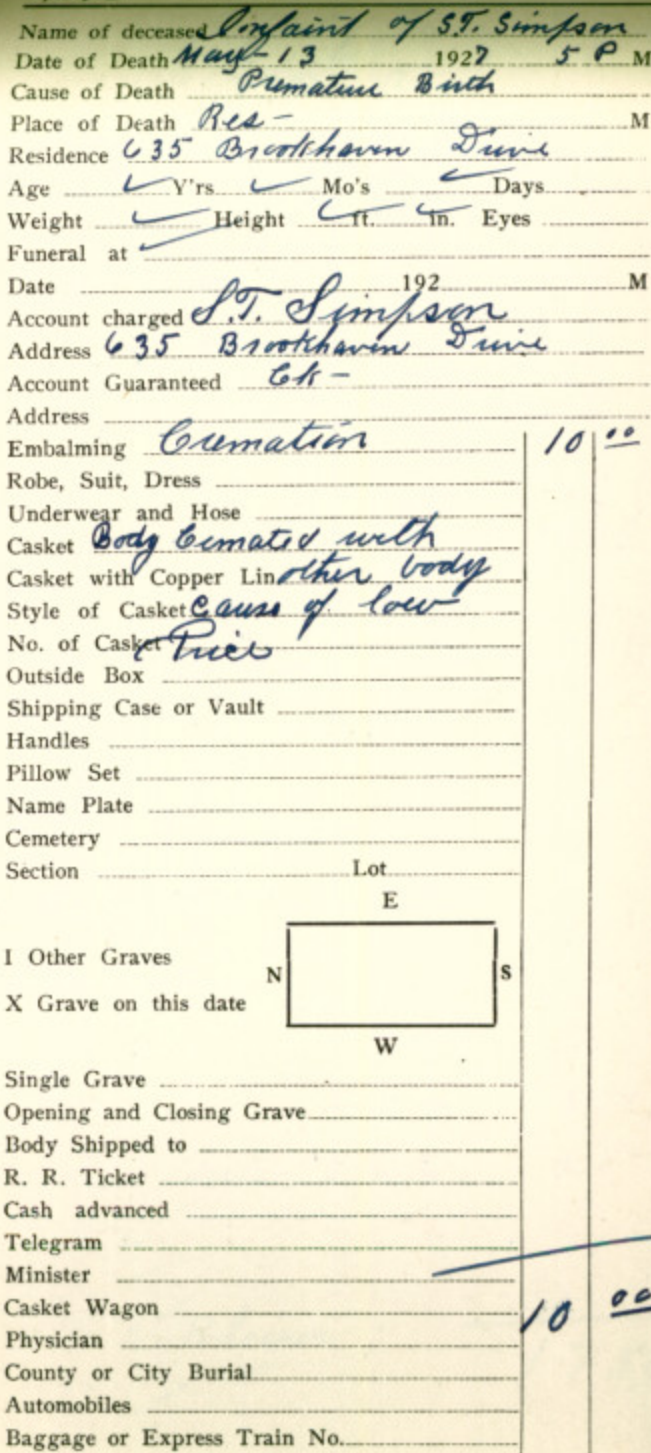 Name of deceased Infaint of S.T. Simpson
Date of Death May - 13 1927 5 P M
Cause of Death Premature Birth
Place of Death Res - M
Residence 635 Brookhaven Drive
Age Y'rs Mo's Days
Weight Height ft. in. Eyes
Funeral at
Date 192 M
Account charged S.T. Simpson
Address 635 Brookhaven Drive
Account Guaranteed Ck -
Address
Embalming Cremation 10 00
Robe, Suit, Dress
Underwear and Hose
Casket Body Cemated with
Casket with Copper Lin other body
Style of Casket Cause of low
No. of Casket Price
Outside Box
Shipping Case or Vault
Handles
Pillow Set
Name Plate
Cemetery
Section Lot
E
I Other Graves
N S
X Grave on this date
W
Single Grave
Opening and Closing Grave
Body Shipped to
R. R. Ticket
Cash advanced
Telegram
Minister
Casket Wagon 10 00
Physician
County or City Burial
Automobiles
Baggage or Express Train No.